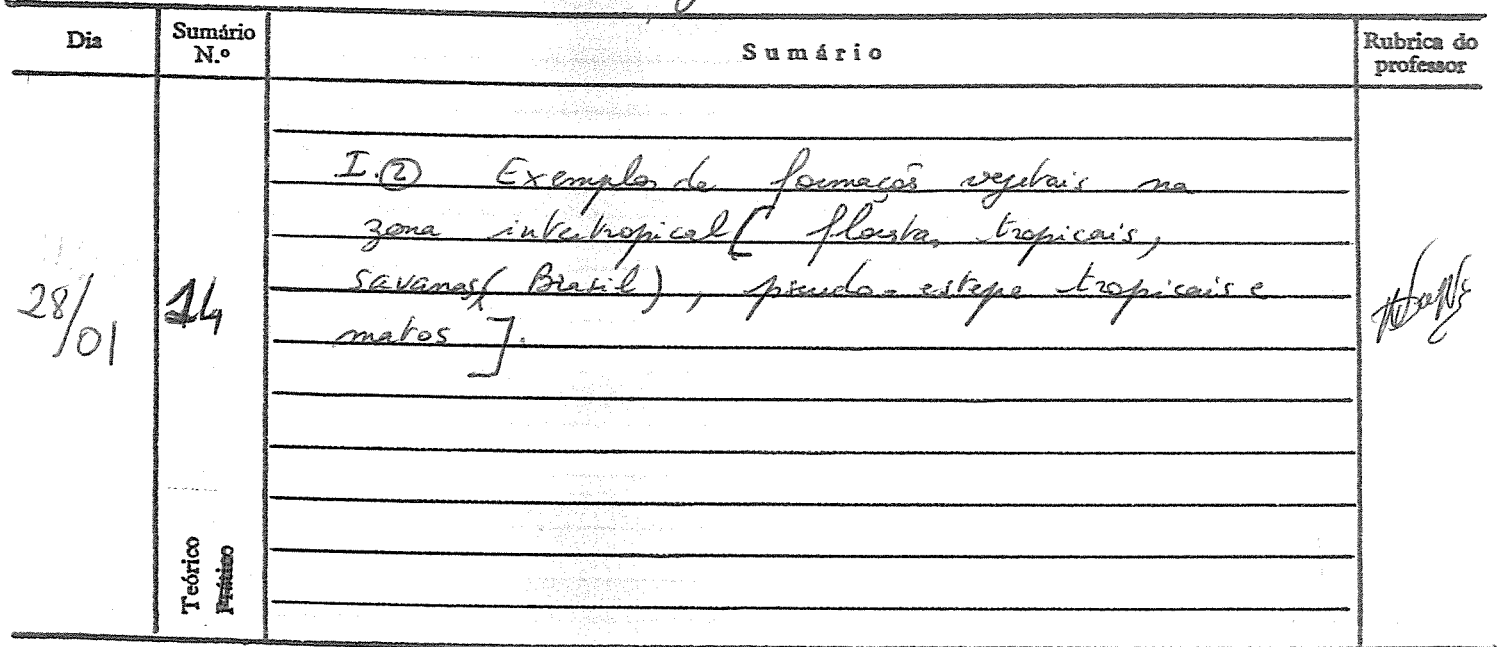 Dia
Sumário
N.º
Sumário
Rubrica do
professor
28/01
14
I.② Exemplos de formações vegetais na
zona intertropical [ florestas tropicais,
savanas ( Brasil ), pseudo-estepe tropicais e
matos ].
Teórico
Prático